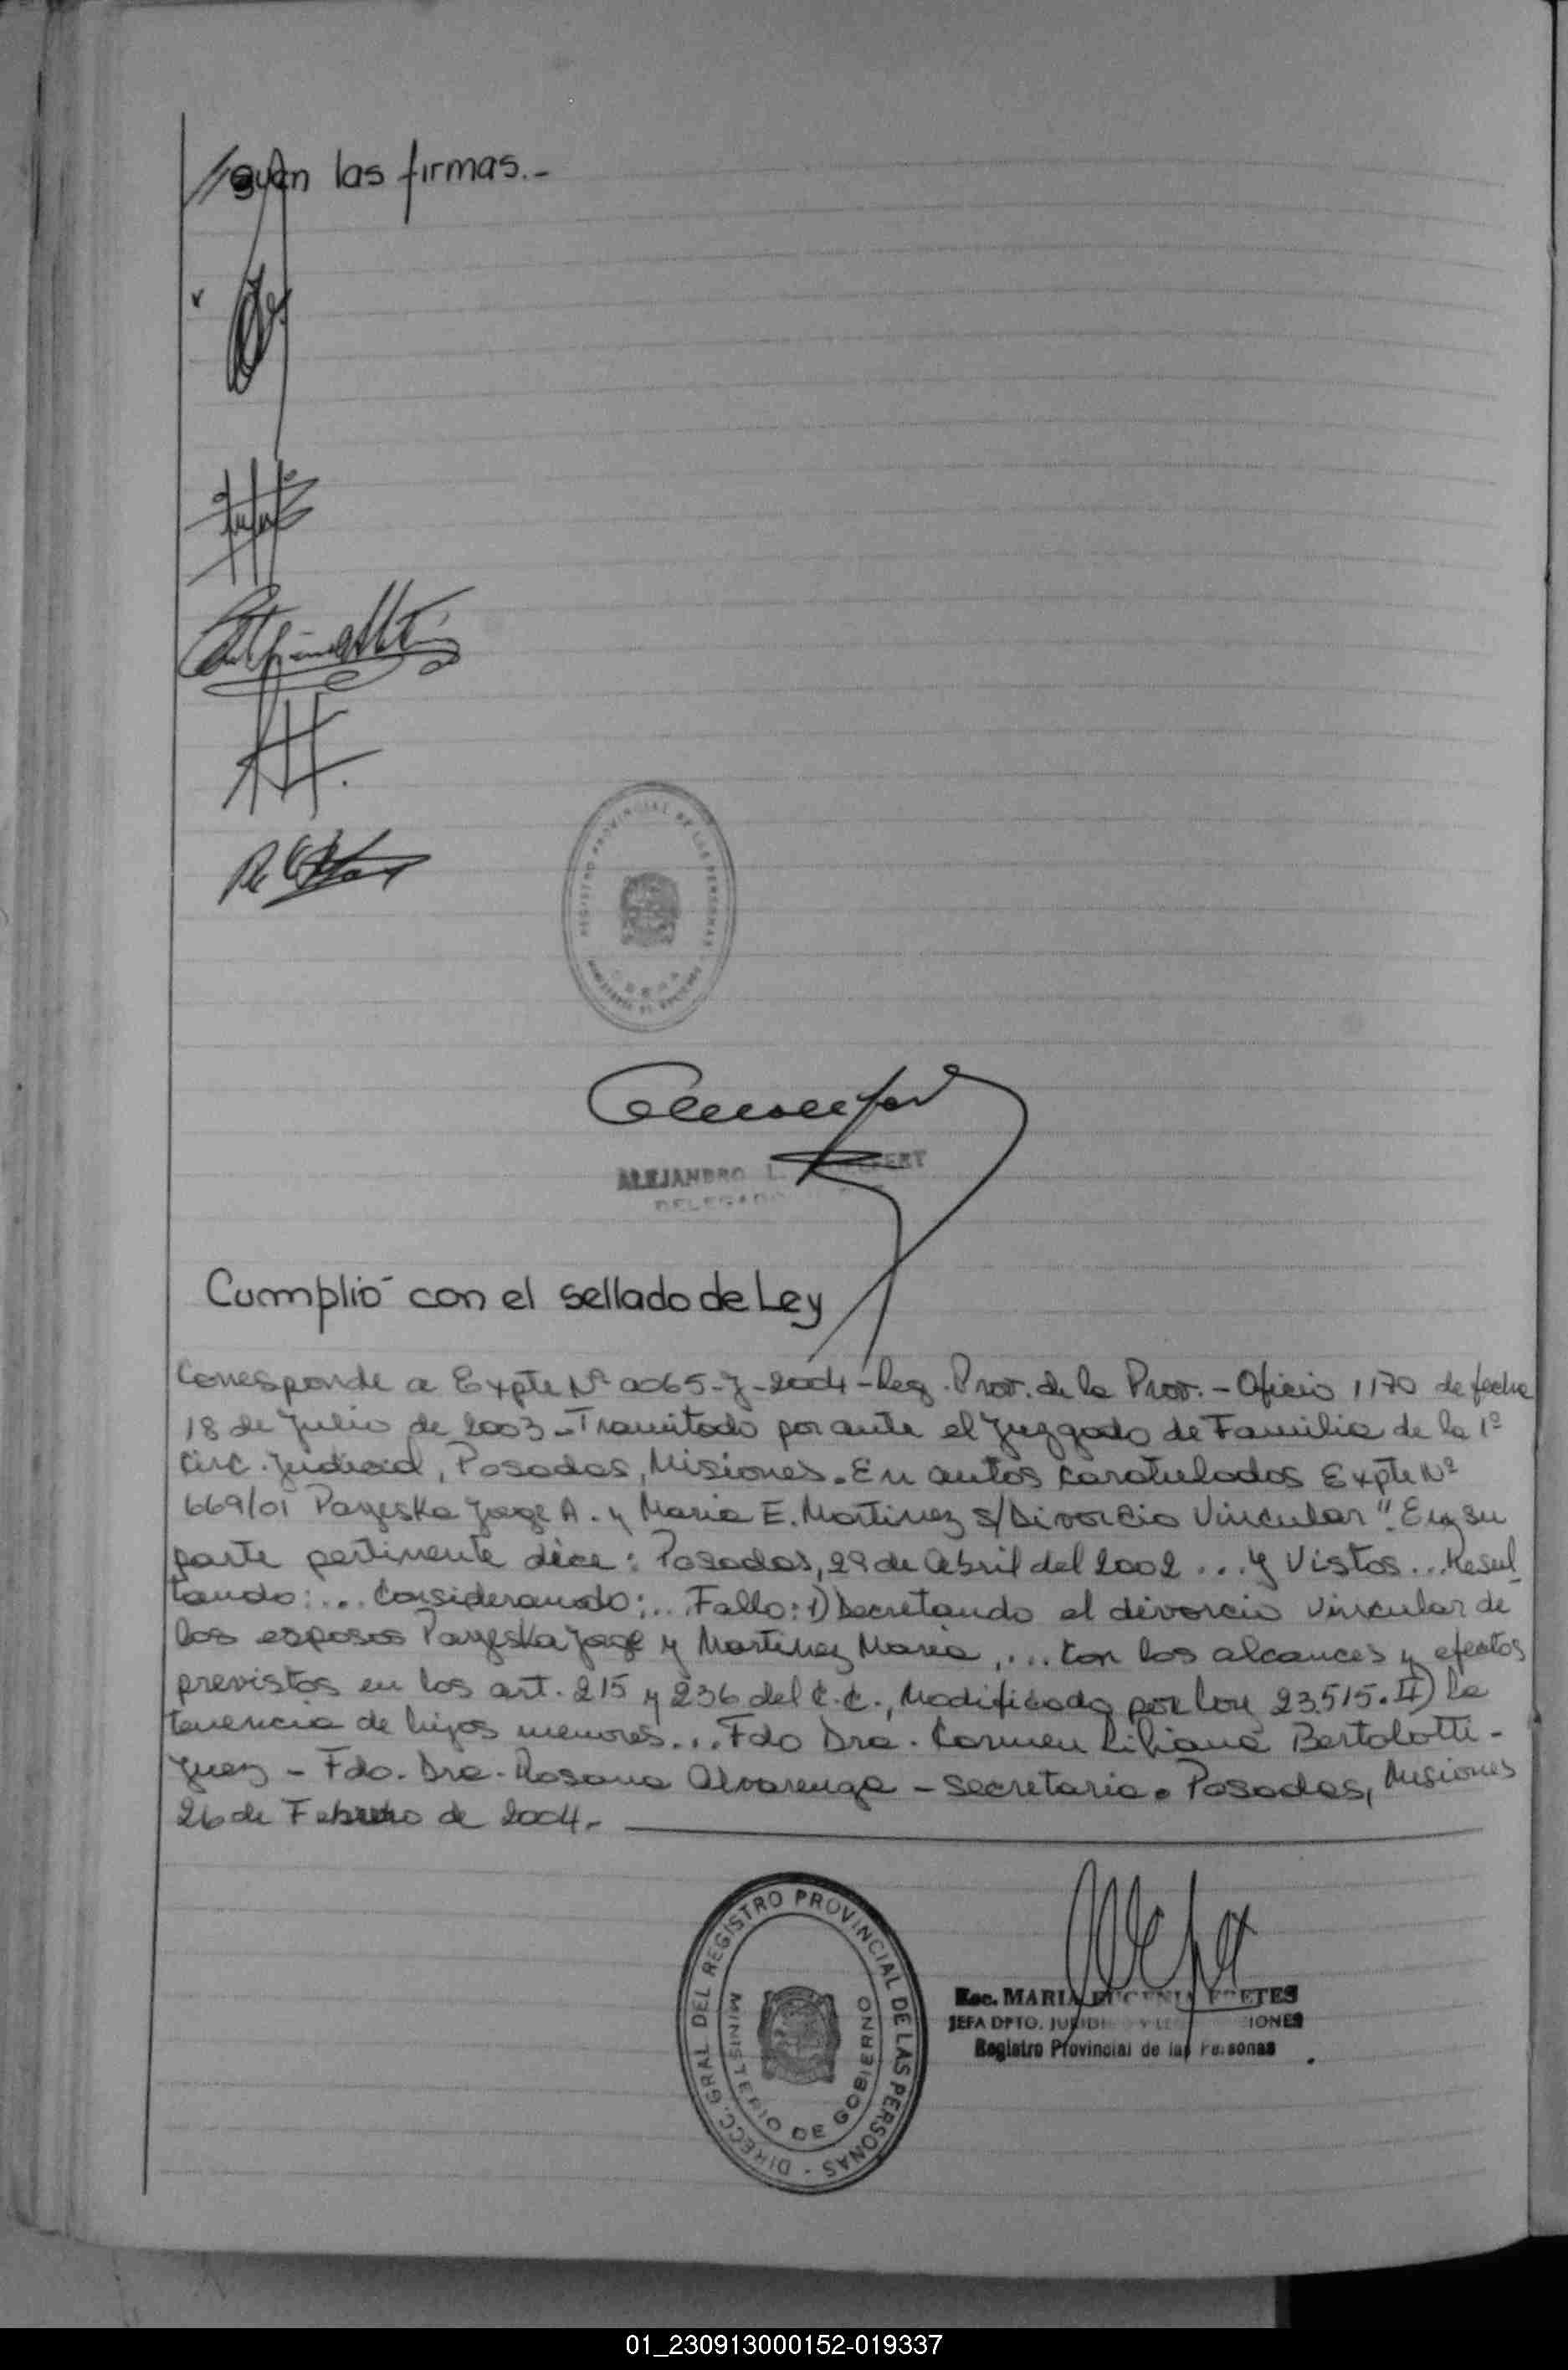 //guen las firmas.-
REGISTRO PROVINCIAL DE LAS PERSONAS
MINISTERIO DE GOBIERNO
ALEJANDRO L.
DELEGADO
Cumplió con el sellado de Ley
Corresponde a Expte Nº 0065-J-2004-Reg. Prov. de la Prov. - Oficio 1170 de fecha
18 de Julio de 2003-Tramitado por ante el Juzgado de Familia de la 1º
Circ. Judicial, Posadas, Misiones. En autos caratulados Expte Nº
669/01 Payeska Jorge A. y Maria E. Martinez s/Divorcio Vincular". En su
parte pertinente dice: Posadas, 29 de Abril del 2002 ... Y Vistos ... Resul-
tando: ... Considerando: ... Fallo: 1) Decretando el divorcio vincular de
los esposos Payeska Jorge y Martinez Maria, ... con los alcances y efectos
previstos en los art. 215 y 236 del C.C., Modificado por Ley 23.515. II) La
tenencia de hijos menores ... Fdo Dra. Carmen Liliana Bertolotti -
Juez - Fdo. Dra. Rosana Alvarenga - Secretaria. Posadas, Misiones
26 de Febrero de 2004.-
DIRECC. GRAL DEL REGISTRO PROVINCIAL DE LAS PERSONAS -
MINISTERIO DE GOBIERNO
Esc. MARIA EUGENIA
JEFA DPTO.
Registro Provincial de las Personas
01_230913000152-019337